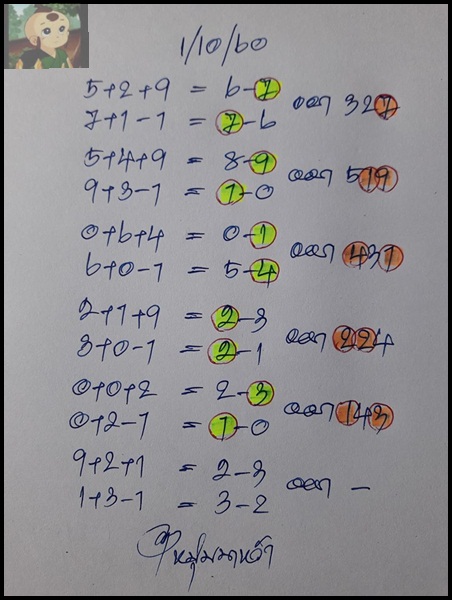 1/10/60
5+2+9 = 6-7
7+1-1 = 7-6
ออก 327
5+4+9 = 8-9
9+3-1 = 1-0
ออก 519
0+6+4 = 0-1
6+0-1 = 5-4
ออก 431
2+1+9 = 2-3
3+0-1 = 2-1
ออก 224
0+0+2 = 2-3
0+2-1 = 1-0
ออก 143
9+2+1 = 2-3
1+3-1 = 3-2
ออก -